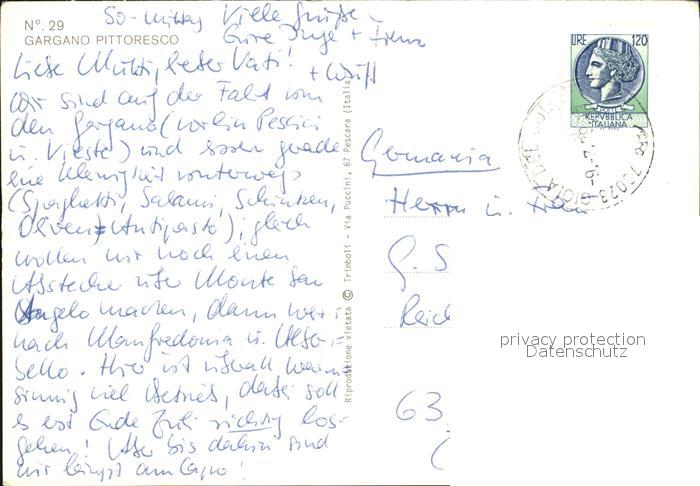 So-mittag Viele Grüße -
Eure Inge +
+ Wulf
N°. 29
GARGANO PITTORESCO
Liebe Mutti, lieber Vati!
Wir sind auf der Fahrt um
den Gargano (vorhin Peschici
u. Vieste) und essen gerade
eine Kleinigkeit unterwegs
(Spaghetti, Salami, Schinken,
Oliven = Antipasto); gleich
wollen wir noch einen
Abstecher über Monte San
Angelo machen, dann weiter
nach Manfredonia u.
Hier ist überall wahn-
sinnig viel Betrieb, dabei soll
es erst Ende Juli richtig los-
gehen! Aber bis dahin sind
wir längst am Capo!
Riproduzione Vietata © Trimboli - Via Puccini, 67 Pescara (Italia)
LIRE 120
POSTE
REPVBBLICA
ITALIANA
70023 GIOIA DEL COLLE
Germania
Herrn u. Frau
G. S
Reich
63
privacy protection
Datenschutz